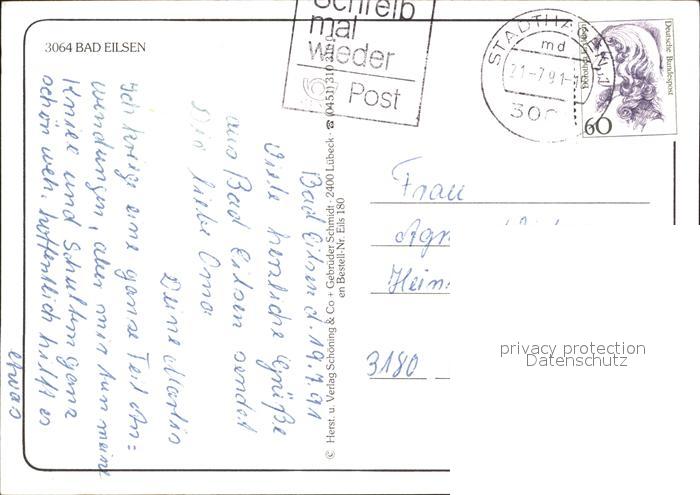 3064 BAD EILSEN
Schreib
mal
wieder
Post
STADTHAGEN 1
md
21-7.91-
300
Deutsche Bundespost
60
© Herst. u. Verlag Schöning & Co + Gebrüder Schmidt · 2400 Lübeck · ☎ (0451) 310 310
en Bestell-Nr. Eils 180
Bad Eilsen d. 19.7.91
Viele herzliche Grüße
aus Bad Eilsen sendet
Dir liebe Oma
Deine
Ich kriege eine ganze Teil An=
wendungen, aber mir tun meine
Kniee und Schultern ganz
schön weh. hoffentlich hilft es
etwas
Frau
Agn
Hein
3180
privacy protection
Datenschutz